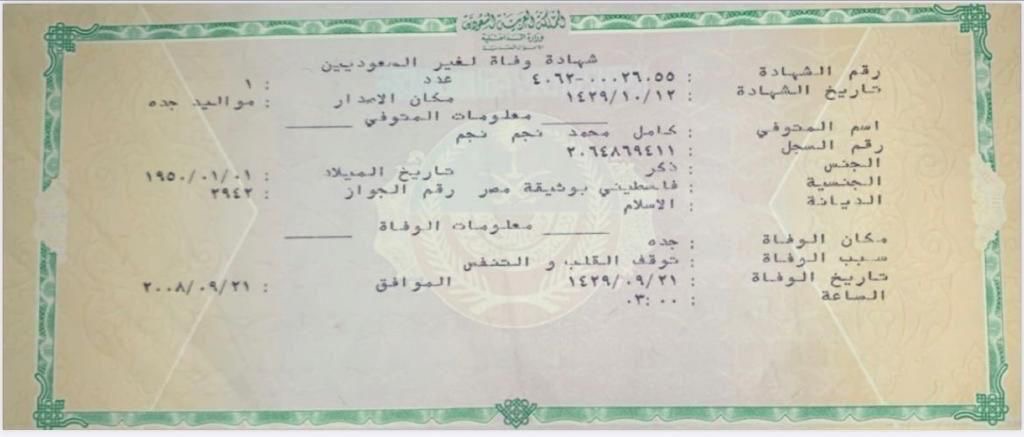 المملكة العربية السعودية
وزارة الداخلية
الأحوال المدنية
شهادة وفاة لغير السعوديين
رقم الشهادة : ٤٠٦٢-٠٠٠٢٦٠٥٥ عدد : ١
تاريخ الشهادة : ١٤٢٩/١٠/١٢ مكان الاصدار : مواليد جده
معلومات المتوفي
اسم المتوفي : كامل محمد نجم نجم
رقم السجل : ٢٠٦٤٨٦٩٤١١
الجنس : ذكر تاريخ الميلاد : ١٩٥٠/٠١/٠١
الجنسية : فلسطيني بوثيقة مصر رقم الجواز : ٢٩٤٢
الديانة : الاسلام
معلومات الوفاة
مكان الوفاة : جده
سبب الوفاة : توقف القلب و التنفس
تاريخ الوفاة : ١٤٢٩/٠٩/٢١ الموافق : ٢٠٠٨/٠٩/٢١
الساعة : ٠٣:٠٠